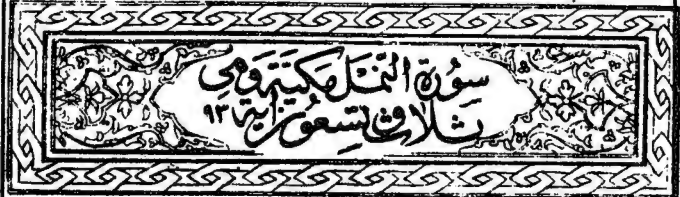 سورة النمل مكية وهي
ثلاث وتسعون آية ٩٣